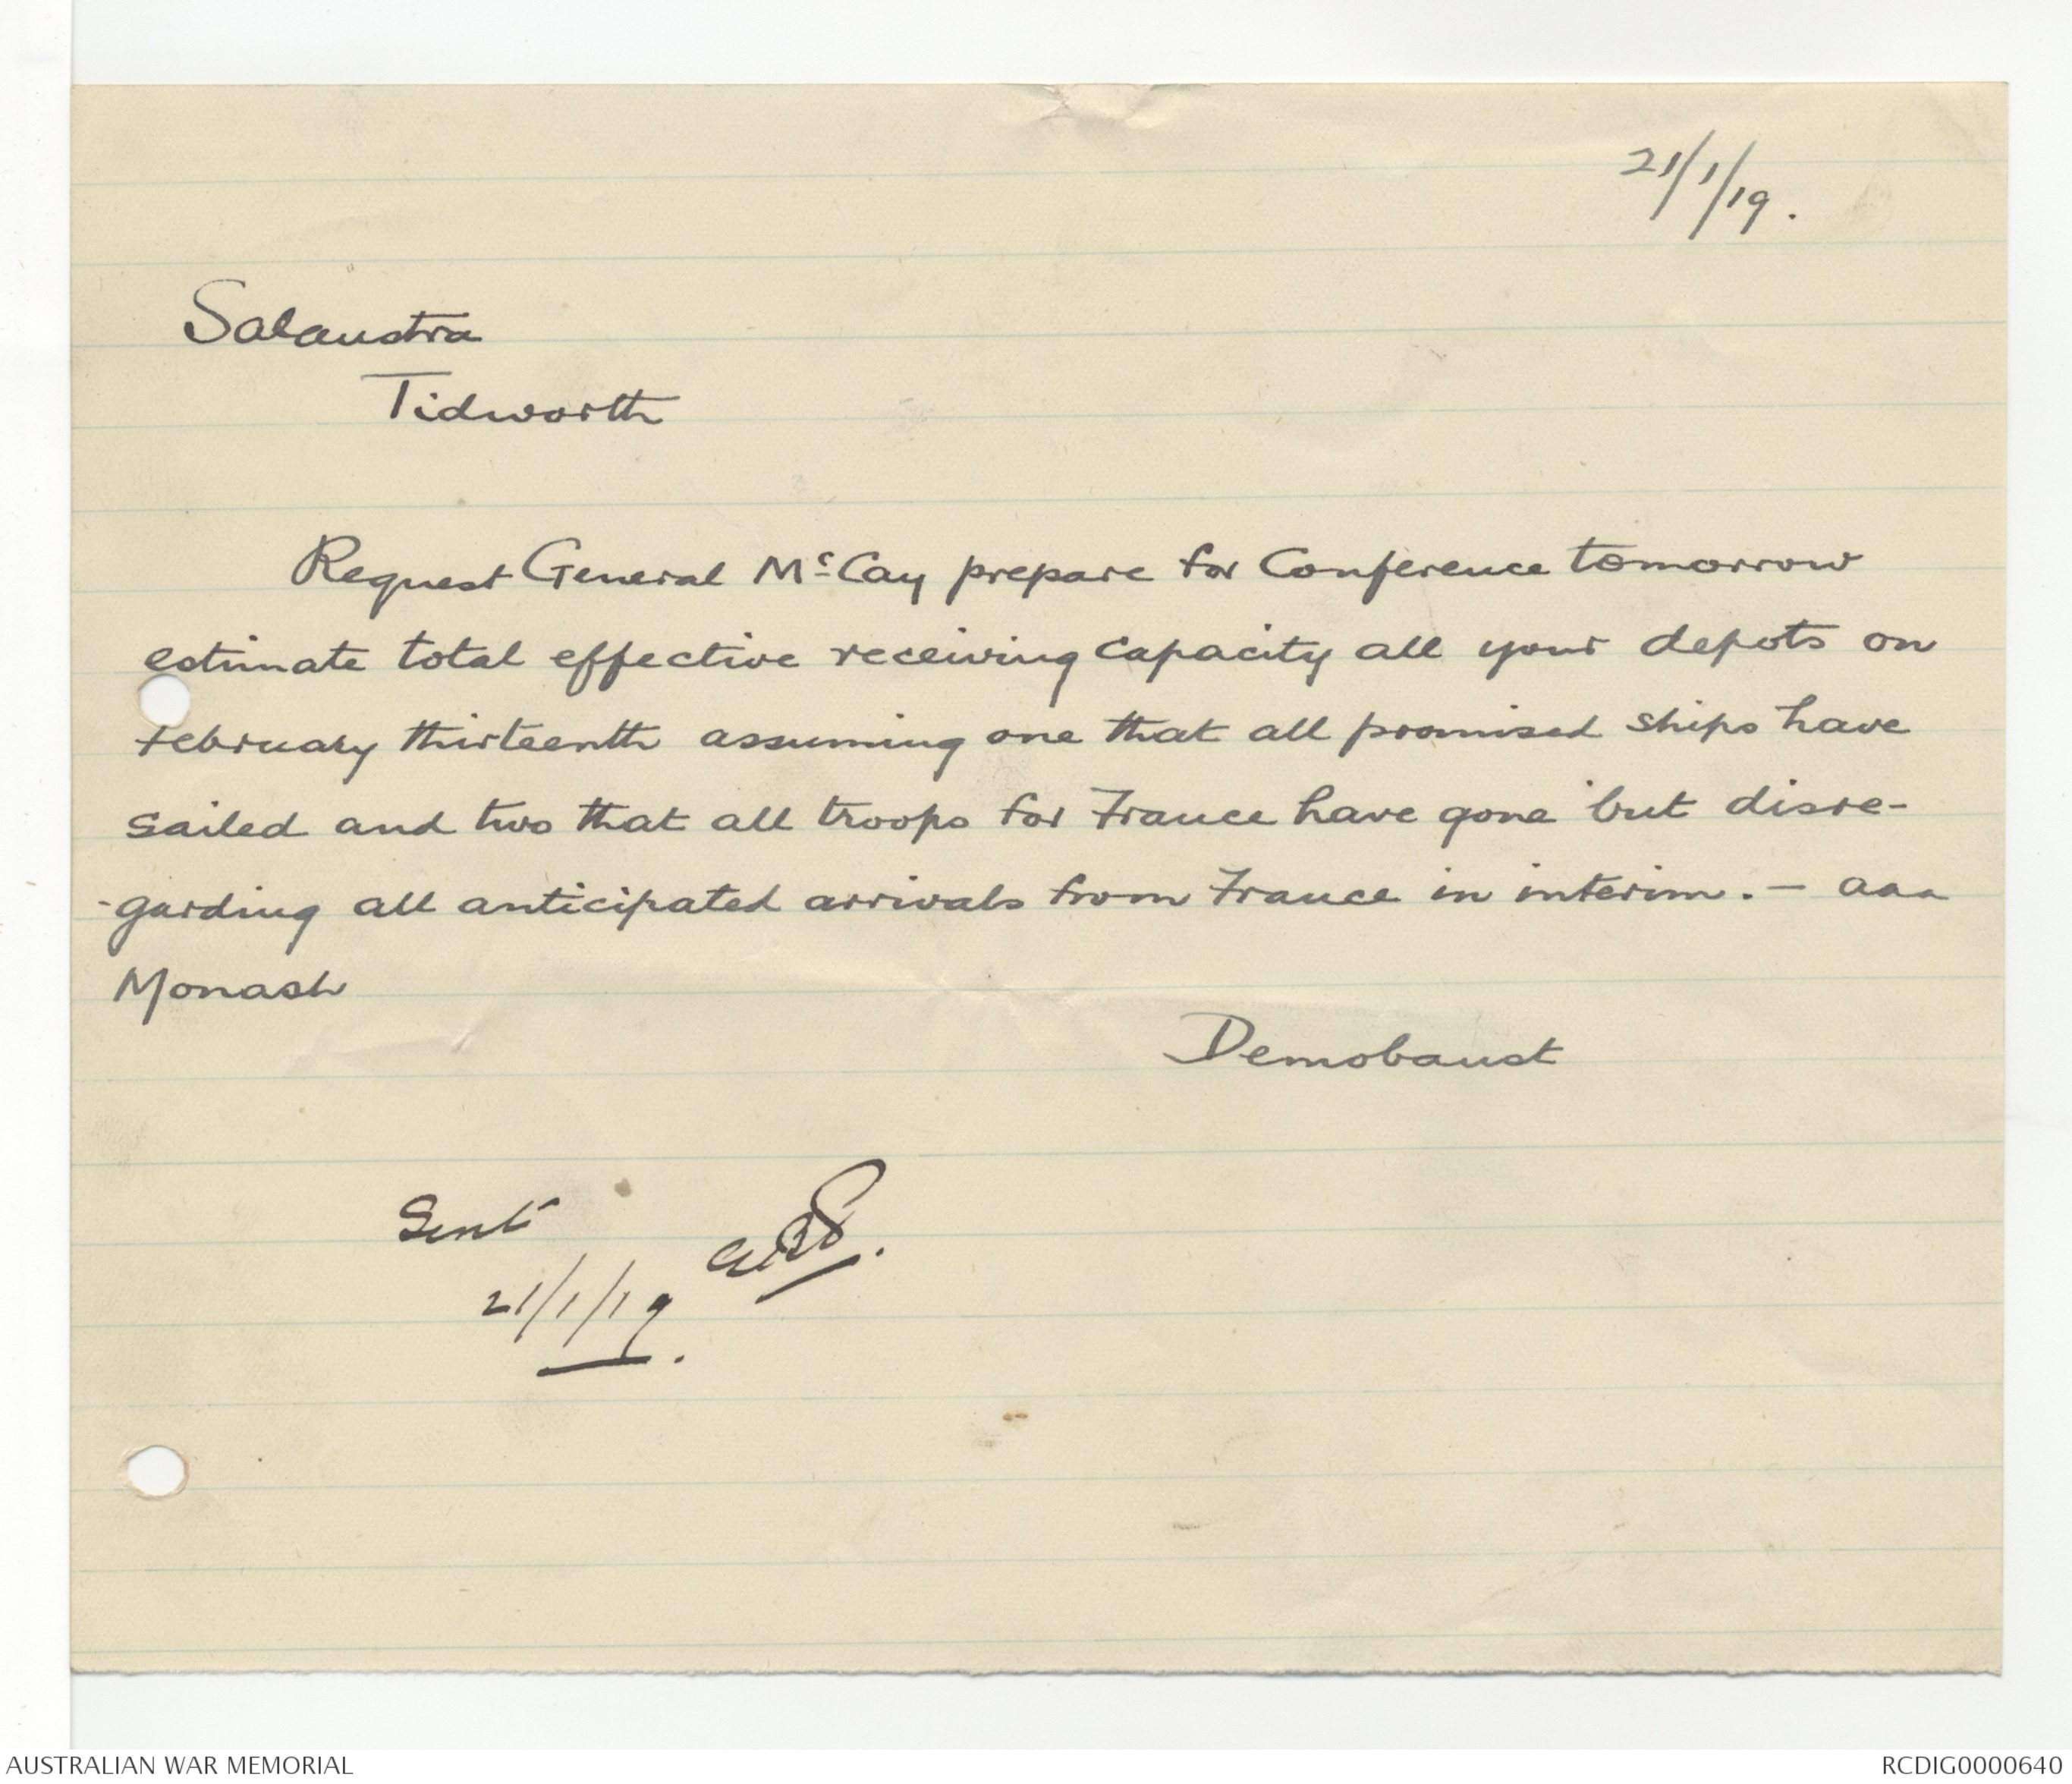 21/1/19.
Salaustra
Tidworth
Request General McCay prepare for Conference tomorrow
estimate total effective receiving capacity all your depots on
February thirteenth assuming one that all promised ships have
sailed and two that all troops for France have gone but disre-
-garding all anticipated arrivals from France in interim. — aaa
Monash
Demobaust
Sent
21/1/19.
AUSTRALIAN WAR MEMORIAL
RCDIG0000640